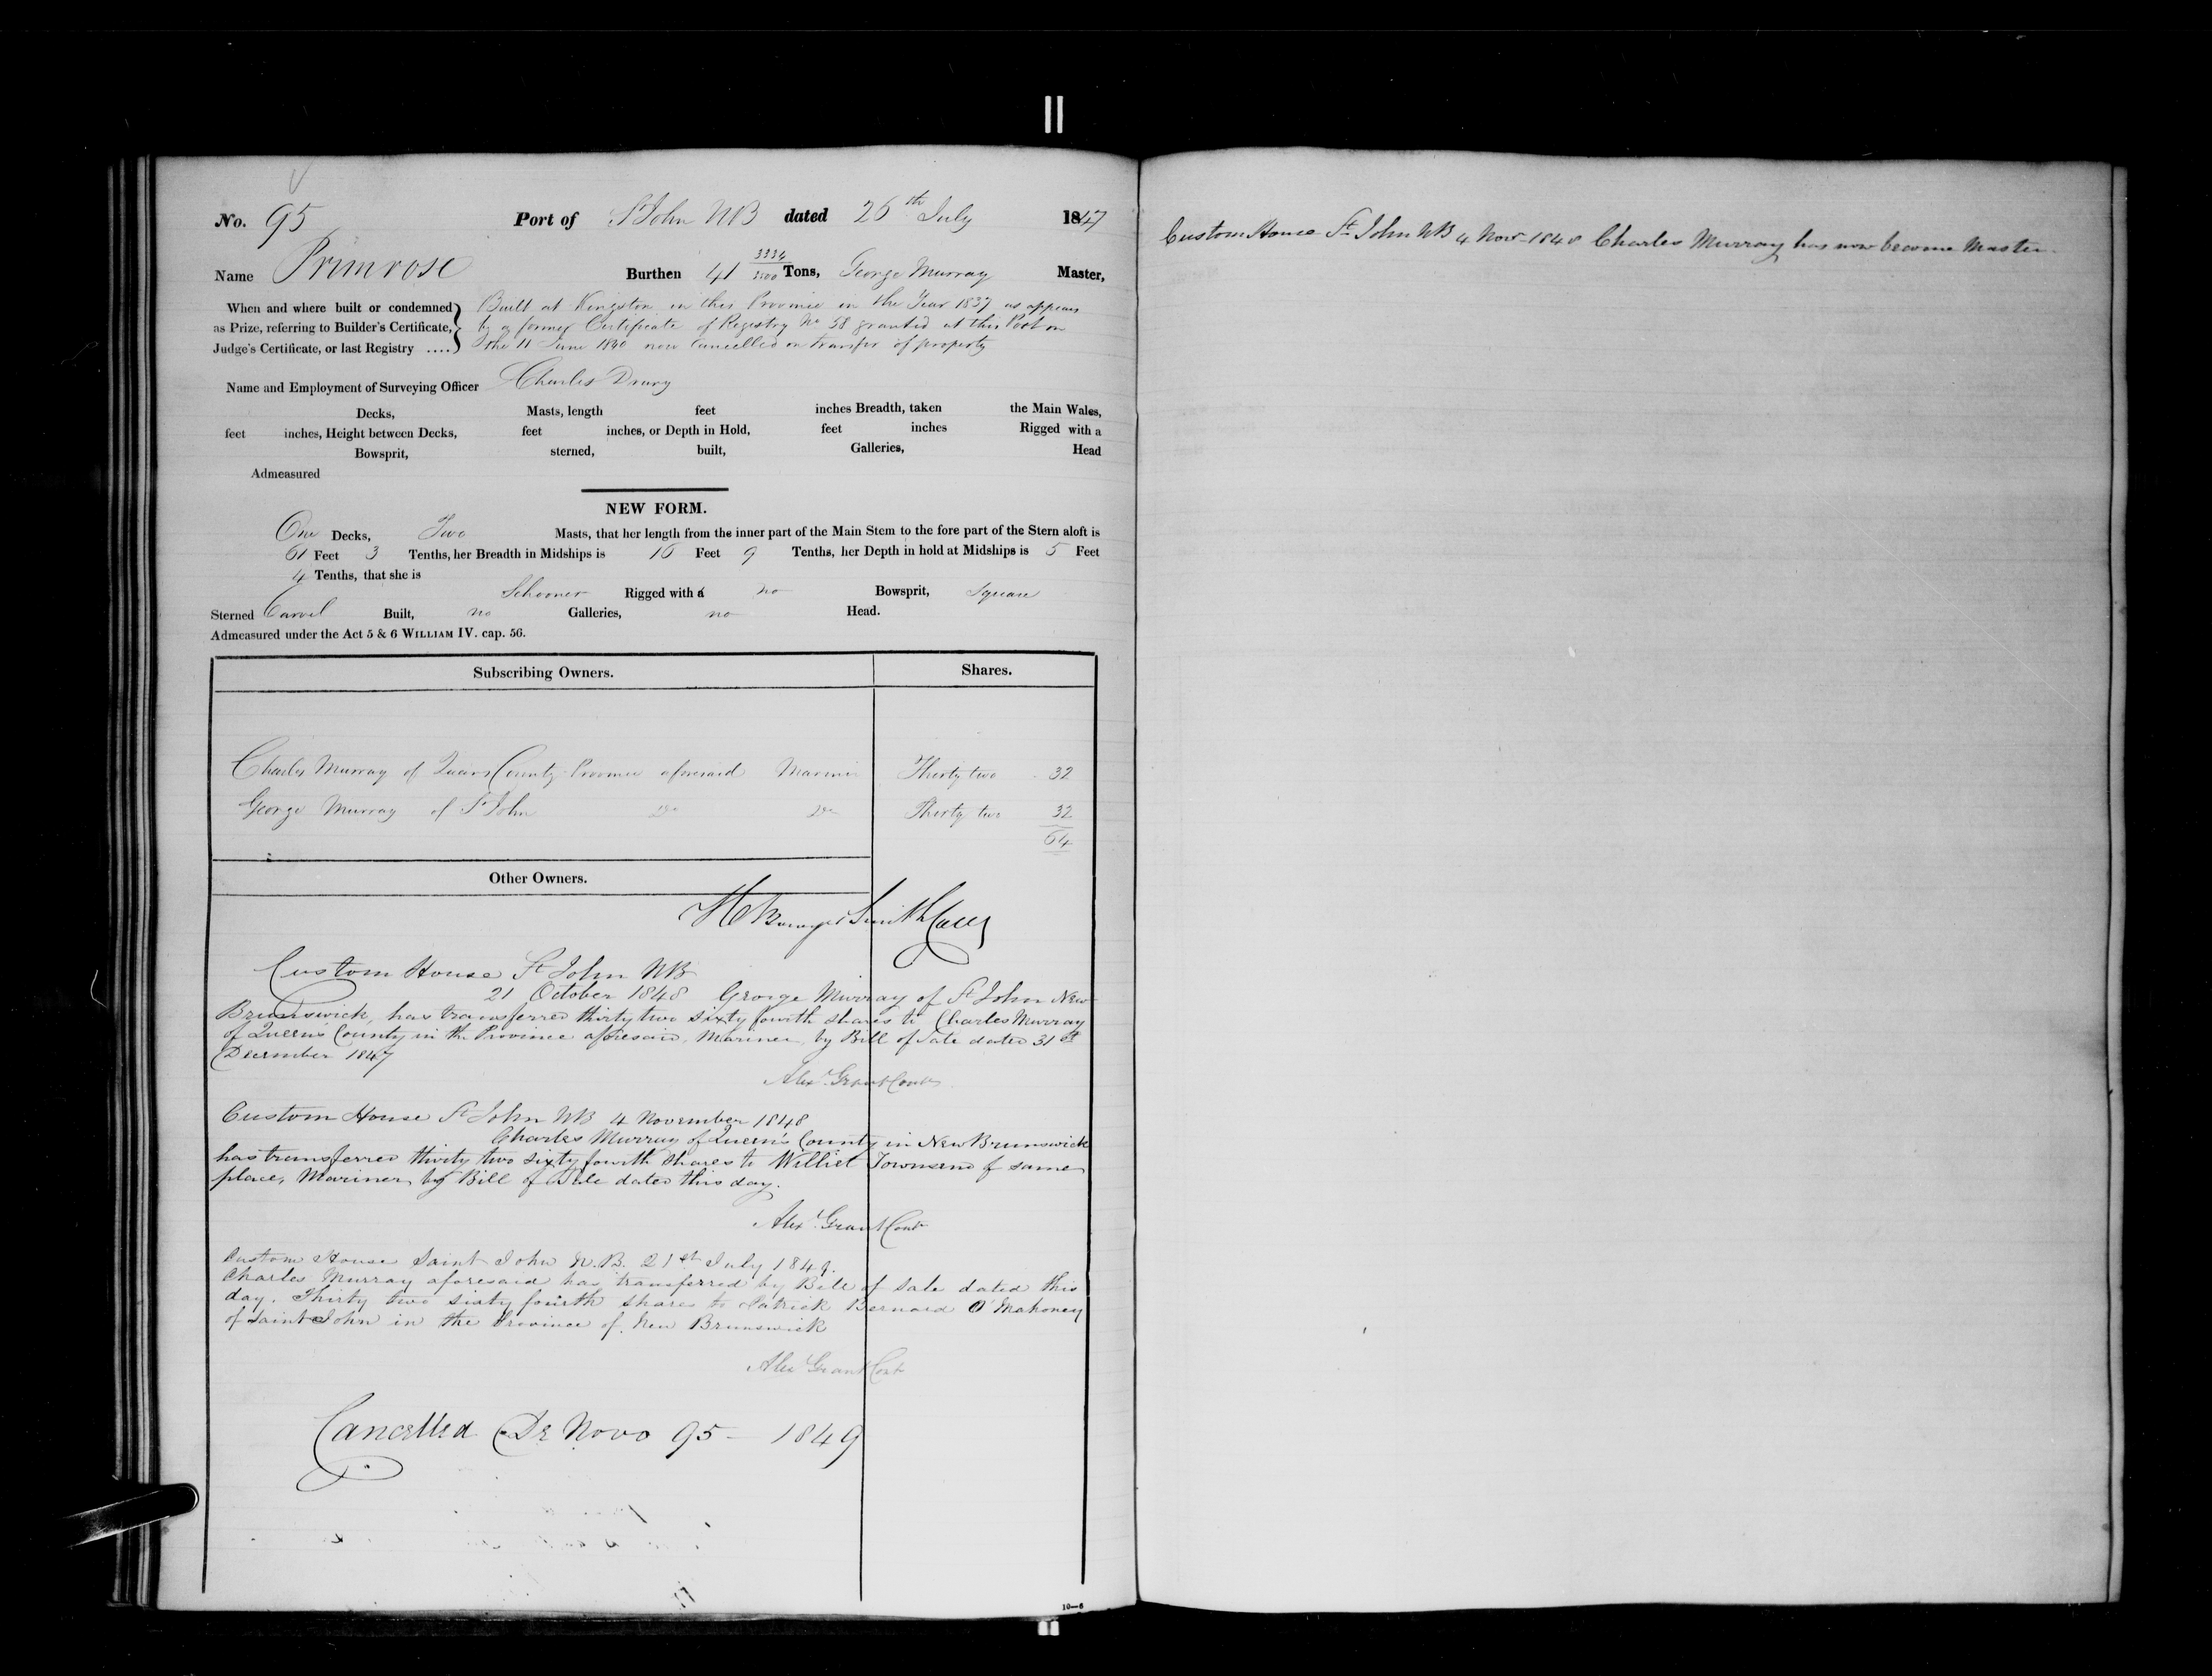 No. 95 Port of St John NB dated 26th July 1847
Name Primrose Burthen 41 3334/3500 Tons, George Murray Master,
When and where built or condemned as Prize, referring to Builder's Certificate, Judge's Certificate, or last Registry ....
Built at Kingston in this Province in the Year 1837 as appears
by a former Certificate of Registry No 58 granted at this Port on
the 11 June 1840 now Cancelled on transfer of property
Name and Employment of Surveying Officer Charles Drury
Decks, Masts, length feet inches Breadth, taken the Main Wales,
feet inches, Height between Decks, feet inches, or Depth in Hold, feet inches Rigged with a
Bowsprit, sterned, built, Galleries, Head
Admeasured
NEW FORM.
One Decks, Two Masts, that her length from the inner part of the Main Stem to the fore part of the Stern aloft is
61 Feet 3 Tenths, her Breadth in Midships is 16 Feet 9 Tenths, her Depth in hold at Midships is 5 Feet
4 Tenths, that she is
Schooner Rigged with a no Bowsprit, Square
Sterned Carvel Built, no Galleries, no Head.
Admeasured under the Act 5 & 6 WILLIAM IV. cap. 56.
Subscribing Owners. Shares.
Charles Murray of Queens County Province aforesaid Mariner Thirty two 32
George Murray of St John Do Do Thirty two 32
64
Other Owners.
Smith
Custom House St John NB
21 October 1848 George Murray of St John New
Brunswick, has transferred thirty two sixty fourth shares to Charles Murray
of Queen's County in the Province aforesaid, Mariner, by Bill of Sale dated 31st
December 1847
Alexr Grant Contr
Custom House St John NB 4 November 1848
Charles Murray of Queen's County in New Brunswick
has transferred thirty two sixty fourth shares to Williet Townsend of same
place, Mariner by Bill of Sale dated this day.
Alexr Grant Contr
Custom House Saint John N.B. 21st July 1849.
Charles Murray aforesaid has transferred by Bill of Sale dated this
day. Thirty two sixty fourth shares to Patrick Bernard O'Mahoney
of Saint John in the Province of New Brunswick
Alexr Grant Contr
Cancelled De Novo 95 - 1849
10—6
Custom House St John NB 4 Novr 1848 Charles Murray has now become Master.